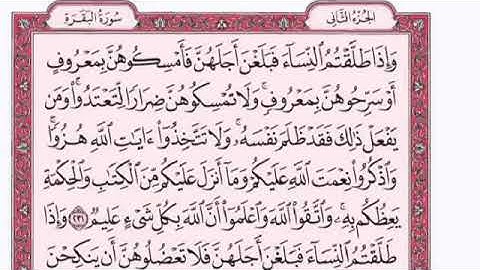 الجزء الثاني
سورة البقرة
وَإِذَا طَلَّقْتُمُ النِّسَآءَ فَبَلَغْنَ أَجَلَهُنَّ فَأَمْسِكُوهُنَّ بِمَعْرُوفٍ
أَوْ سَرِّحُوهُنَّ بِمَعْرُوفٍ ۚ وَلَا تُمْسِكُوهُنَّ ضِرَارًا لِّتَعْتَدُوا۟ ۚ وَمَن
يَفْعَلْ ذَٰلِكَ فَقَدْ ظَلَمَ نَفْسَهُۥ ۚ وَلَا تَتَّخِذُوٓا۟ ءَايَٰتِ ٱللَّهِ هُزُوًا ۚ
وَٱذْكُرُوا۟ نِعْمَتَ ٱللَّهِ عَلَيْكُمْ وَمَآ أَنزَلَ عَلَيْكُم مِّنَ ٱلْكِتَٰبِ وَٱلْحِكْمَةِ
يَعِظُكُم بِهِۦ ۚ وَٱتَّقُوا۟ ٱللَّهَ وَٱعْلَمُوٓا۟ أَنَّ ٱللَّهَ بِكُلِّ شَىْءٍ عَلِيمٌ ٢٣١ وَإِذَا
طَلَّقْتُمُ ٱلنِّسَآءَ فَبَلَغْنَ أَجَلَهُنَّ فَلَا تَعْضُلُوهُنَّ أَن يَنكِحْنَ